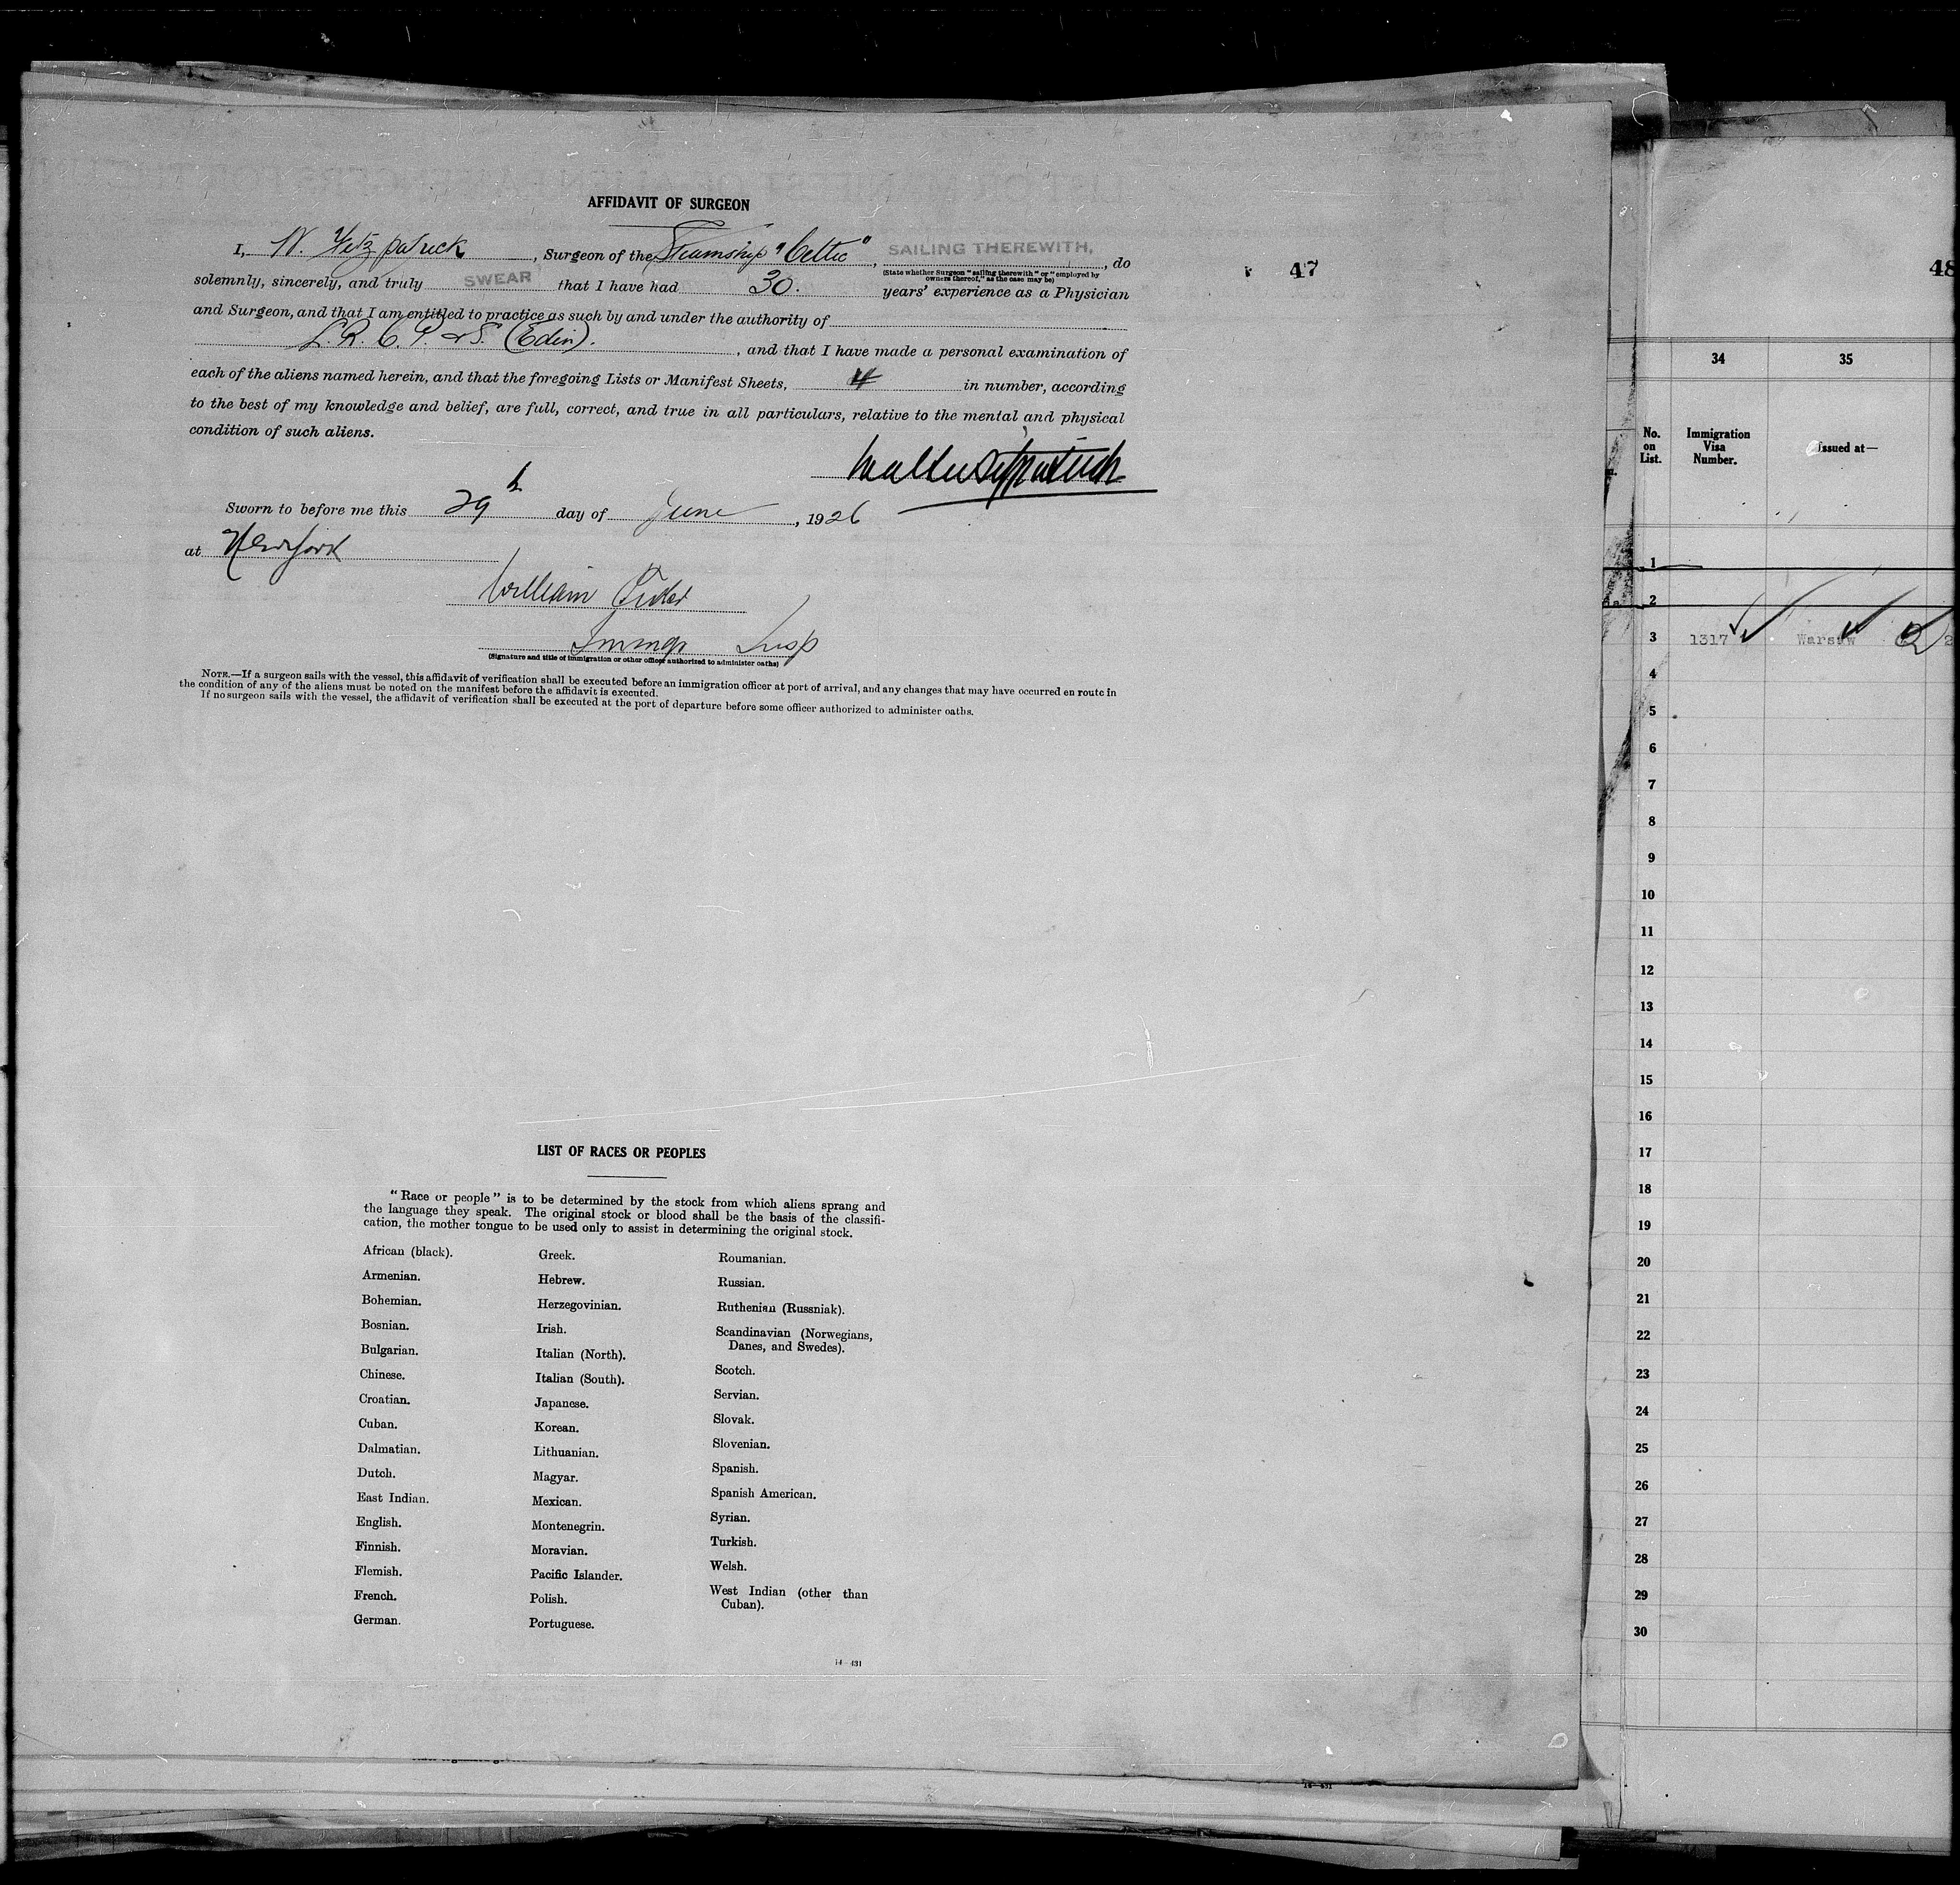 AFFIDAVIT OF SURGEON
I, W. Fitzpatrick, Surgeon of the Steamship "Celtic", SAILING THEREWITH, do
(State whether Surgeon "sailing therewith" or "employed by owners thereof," as the case may be)
solemnly, sincerely, and truly SWEAR that I have had 30. years' experience as a Physician
and Surgeon, and that I am entitled to practice as such by and under the authority of
L.R.C.P. & S. (Edin). , and that I have made a personal examination of
each of the aliens named herein, and that the foregoing Lists or Manifest Sheets, 4 in number, according
to the best of my knowledge and belief, are full, correct, and true in all particulars, relative to the mental and physical
condition of such aliens.
Walter Fitzpatrick
Sworn to before me this 29th day of June, 1926
at New York
William
Immgr Insp
(Signature and title of immigration or other officer authorized to administer oaths)
NOTE.—If a surgeon sails with the vessel, this affidavit of verification shall be executed before an immigration officer at port of arrival, and any changes that may have occurred en route in
the condition of any of the aliens must be noted on the manifest before the affidavit is executed.
If no surgeon sails with the vessel, the affidavit of verification shall be executed at the port of departure before some officer authorized to administer oaths.
47
LIST OF RACES OR PEOPLES
"Race or people" is to be determined by the stock from which aliens sprang and
the language they speak. The original stock or blood shall be the basis of the classifi-
cation, the mother tongue to be used only to assist in determining the original stock.
African (black).
Armenian.
Bohemian.
Bosnian.
Bulgarian.
Chinese.
Croatian.
Cuban.
Dalmatian.
Dutch.
East Indian.
English.
Finnish.
Flemish.
French.
German.
Greek.
Hebrew.
Herzegovinian.
Irish.
Italian (North).
Italian (South).
Japanese.
Korean.
Lithuanian.
Magyar.
Mexican.
Montenegrin.
Moravian.
Pacific Islander.
Polish.
Portuguese.
Roumanian.
Russian.
Ruthenian (Russniak).
Scandinavian (Norwegians,
Danes, and Swedes).
Scotch.
Servian.
Slovak.
Slovenian.
Spanish.
Spanish American.
Syrian.
Turkish.
Welsh.
West Indian (other than
Cuban).
14—431
14—431
48
34 35
No. on List.
Immigration Visa Number.
Issued at—
1
2
3 1317 Warsaw
4
5
6
7
8
9
10
11
12
13
14
15
16
17
18
19
20
21
22
23
24
25
26
27
28
29
30